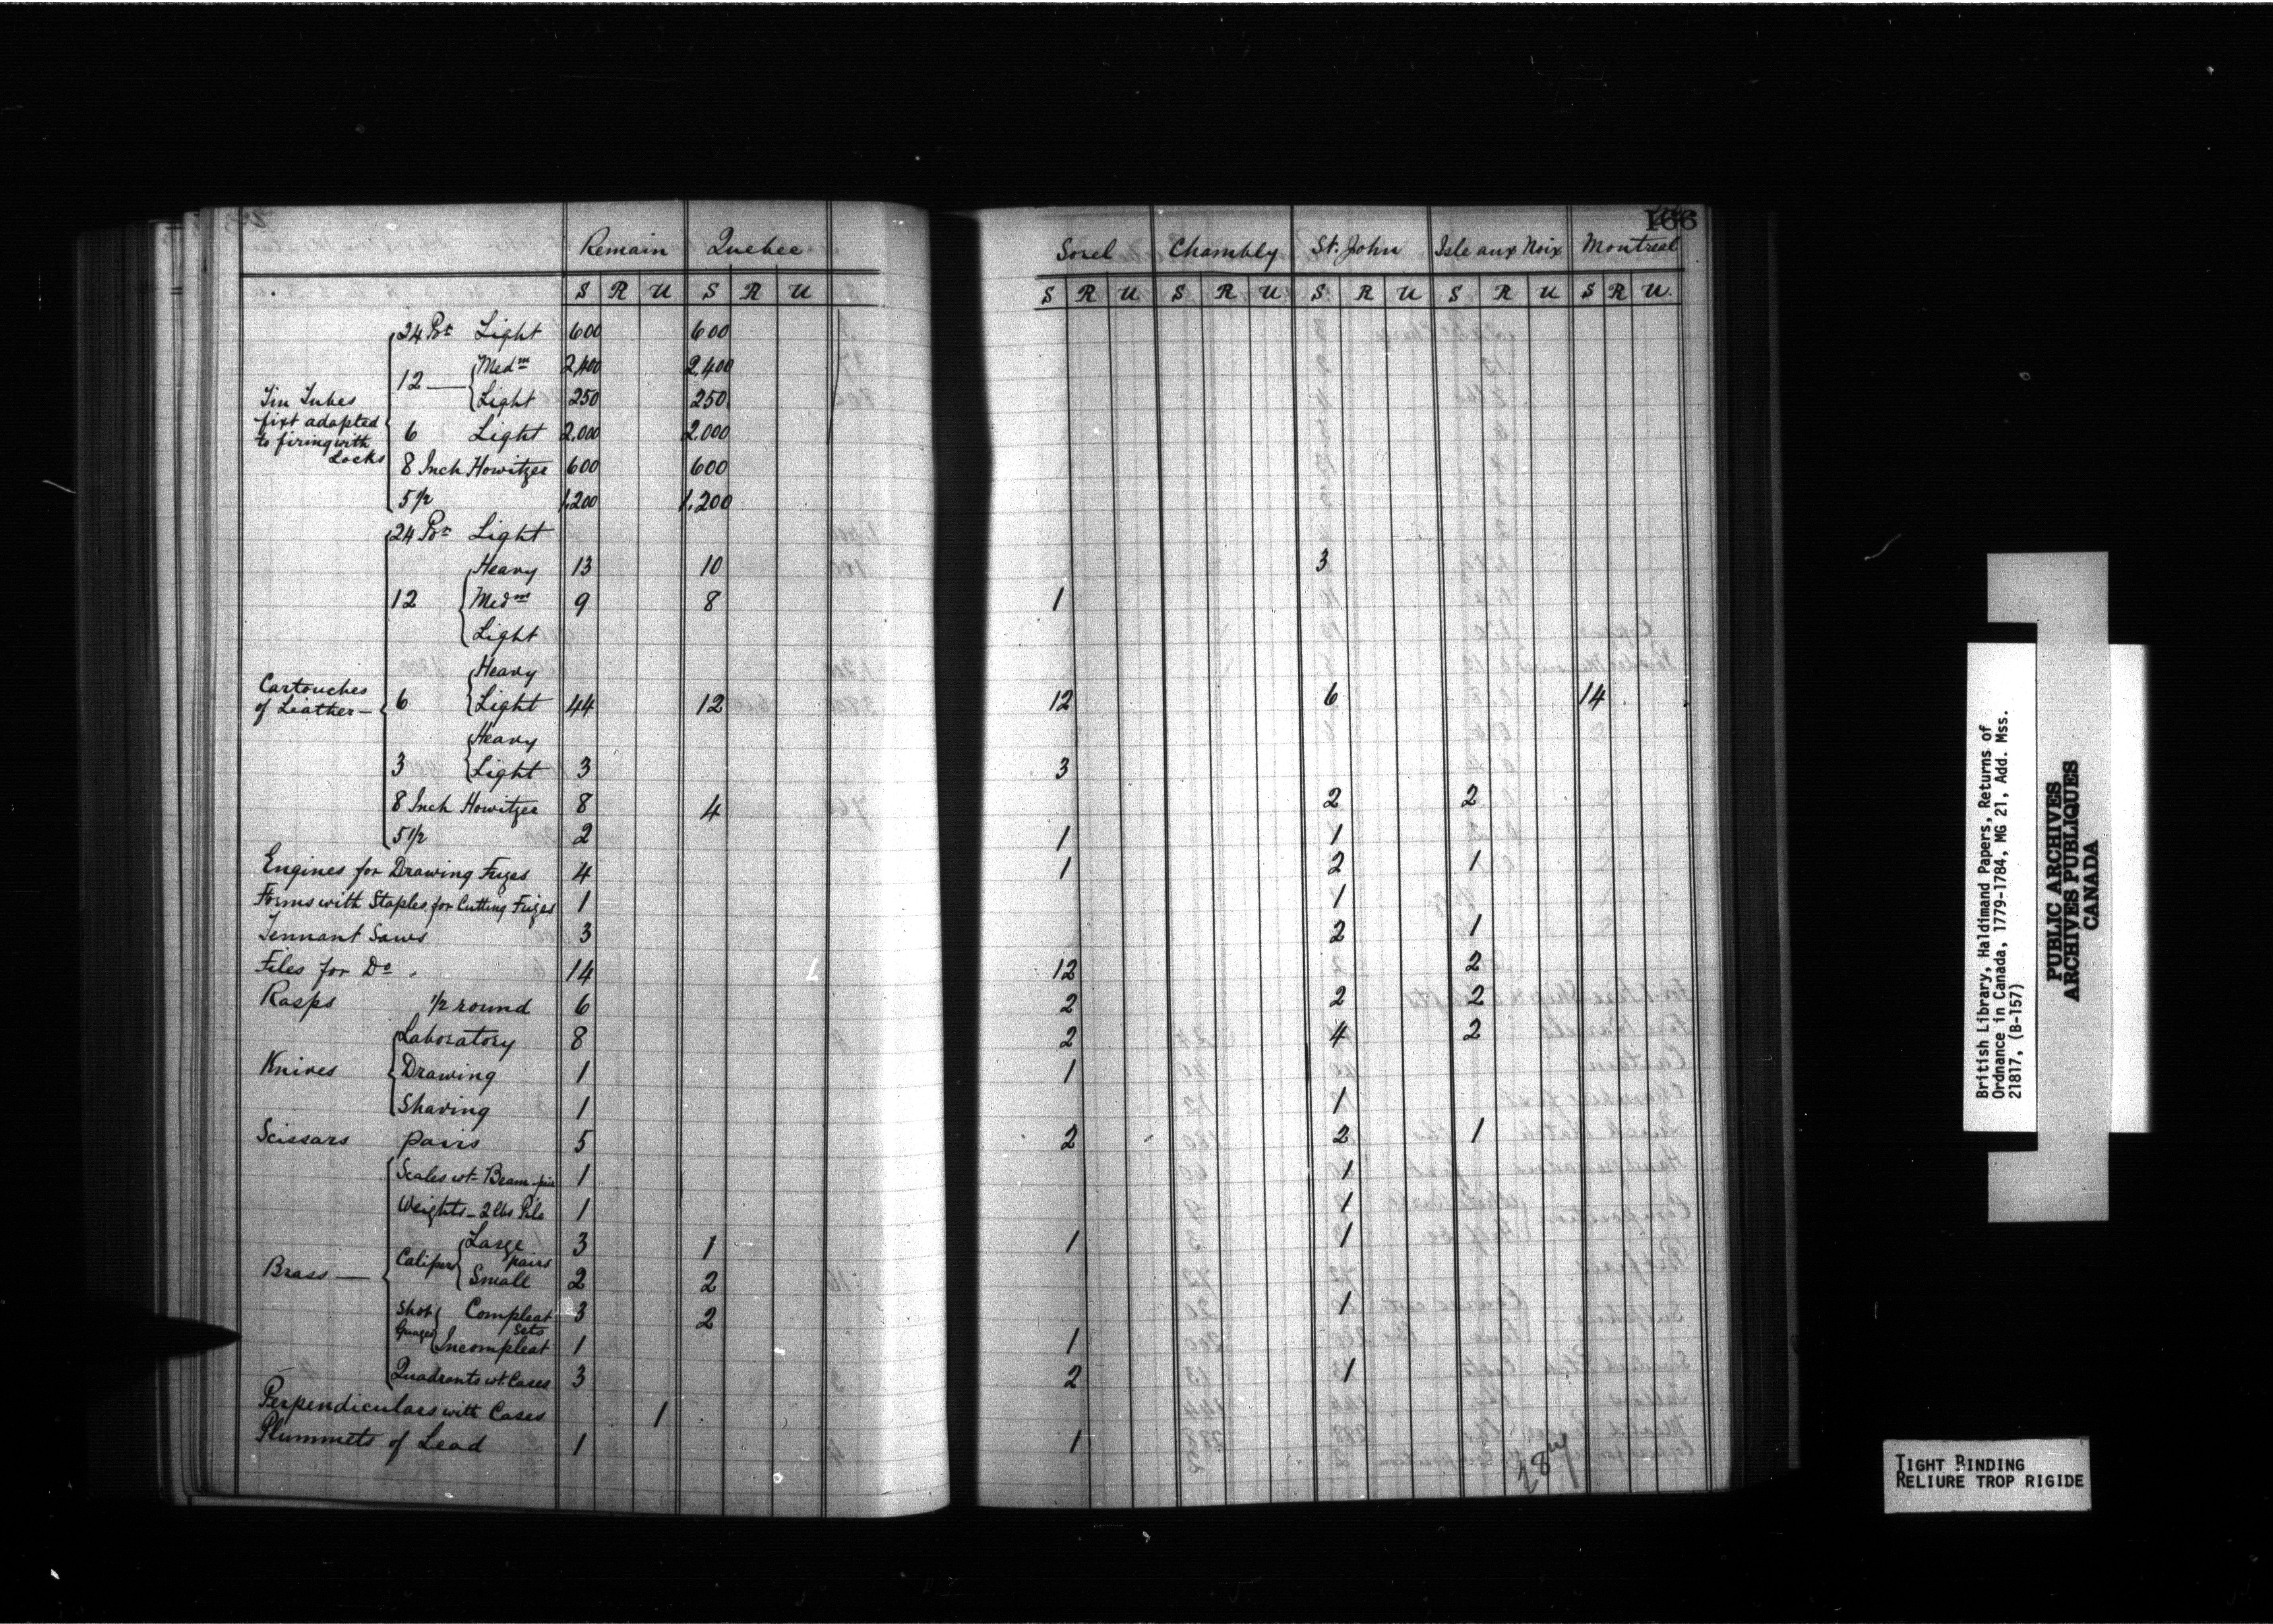 166
Remain Quebec Sorel Chambly St. John Isle aux Noix Montreal
S R U S R U S R U S R U S R U S R U S R U.
24 Pr Light 600 600
12 — Medm 2,400 2,400
Light 250 250
Tin Tubes
fixt adapted
to firing with
Locks
6 Light 2,000 2,000
8 Inch Howitzer 600 600
5 1/2 1,200 1,200
24 Pr Light
Heavy 13 10 3
12 Medm 9 8 1
Light
Heavy
Cartouches
of Leather —
6 Light 44 12 12 6 14
Heavy
3 Light 3 3
8 Inch Howitzer 8 4 2 2
5 1/2 2 1 1
Engines for Drawing Fuzes 4 1 2 1
Forms with Staples for Cutting Fuzes 1 1
Tennant Saws 3 2 1
Files for Do. 14 12 2
Rasps 1/2 round 6 2 2 2
Laboratory 8 2 4 2
Knives Drawing 1 1
Shaving 1 1
Scissars pairs 5 2 2 1
Scales wt. Beam pair 1 1
Weights — 2 lbs Pile 1 1
Large 3 1 1 1
Calipers pairs
Brass — Small 2 2
Shot Compleat 3 2 1
Guages Sets
Incompleat 1 1
Quadrants wt. Cases 3 2 1
Perpendiculars with Cases 1
Plummets of Lead 1 1
British Library, Haldimand Papers, Returns of
Ordnance in Canada, 1779-1784, MG 21, Add. Mss.
21817, (B-157)
PUBLIC ARCHIVES
ARCHIVES PUBLIQUES
CANADA
TIGHT BINDING
RELIURE TROP RIGIDE